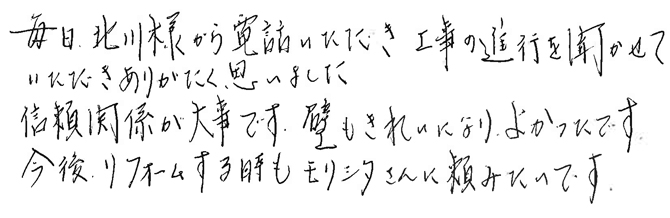 毎日、北川様から電話いただき 工事の進行を聞かせて
いただきありがたく思いました
信頼関係が大事です。壁もきれいになり、よかったです。
今後、リフォームする時もモリシタさんに頼みたいです。